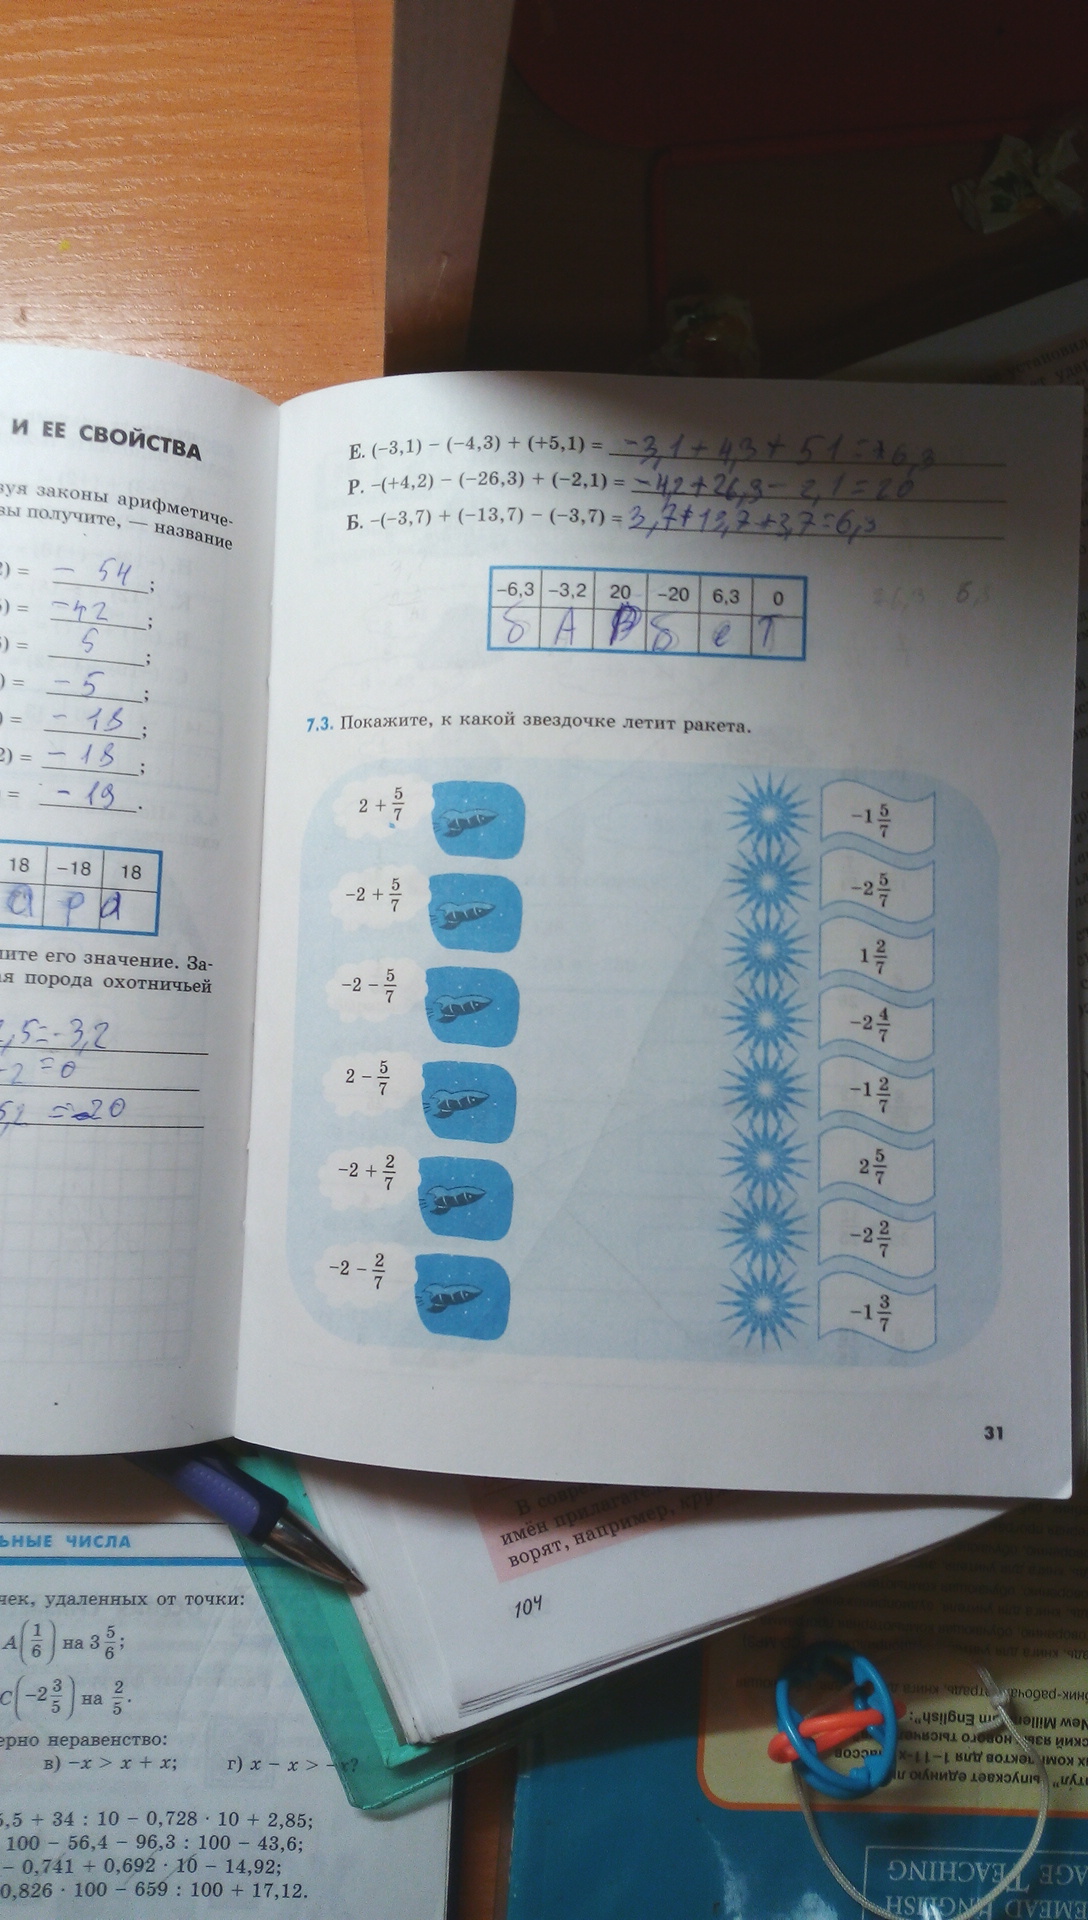 И ЕЕ СВОЙСТВА
зуя законы арифметиче-
вы получите, — название
2) = – 54;
5) = –42;
) = 5;
) = – 5;
) = – 18;
2) = – 18;
= – 19.
18 –18 18
а р а
лите его значение. За-
ая порода охотничьей
2,5=-3,2
-2 = 0
5,2 =-20
Е. (–3,1) – (–4,3) + (+5,1) = -3,1 + 4,3 + 5 1 = +6,3
Р. –(+4,2) – (–26,3) + (–2,1) = -4,2+26,3 - 2,1 = 20
Б. –(–3,7) + (–13,7) – (–3,7) = 3,7+13,7+3,7=6,3
–6,3 –3,2 20 –20 6,3 0
б А Р б е Т
7.3. Покажите, к какой звездочке летит ракета.
2 + 5/7
–2 + 5/7
–2 – 5/7
2 – 5/7
–2 + 2/7
–2 – 2/7
–1 5/7
–2 5/7
1 2/7
–2 4/7
–1 2/7
2 5/7
–2 2/7
–1 3/7
31
В совре
имён прилагате
ворят, например, кру
104
ЬНЫЕ ЧИСЛА
чек, удаленных от точки:
A(1/6) на 3 5/6;
C(–2 3/5) на 2/5.
ерно неравенство:
в) –x > x + x; г) x – x > –x?
5,5 + 34 : 10 – 0,728 · 10 + 2,85;
100 – 56,4 – 96,3 : 100 – 43,6;
– 0,741 + 0,692 · 10 – 14,92;
0,826 · 100 – 659 : 100 + 17,12.
New Millen m English":
ский язык нового тысяч
их комплектов для 1–11-х классов
тул" выпускает единую
AGE TEACHING
EMEAD ENGLISH